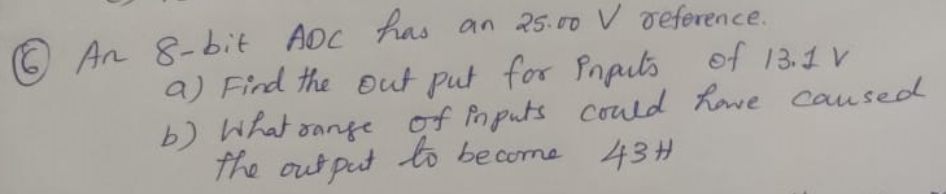 ⑥ An 8-bit ADC has an 25.00 V reference.
a) Find the out put for Inputs of 13.1 V
b) What range of Inputs could have caused
the output to become 43H